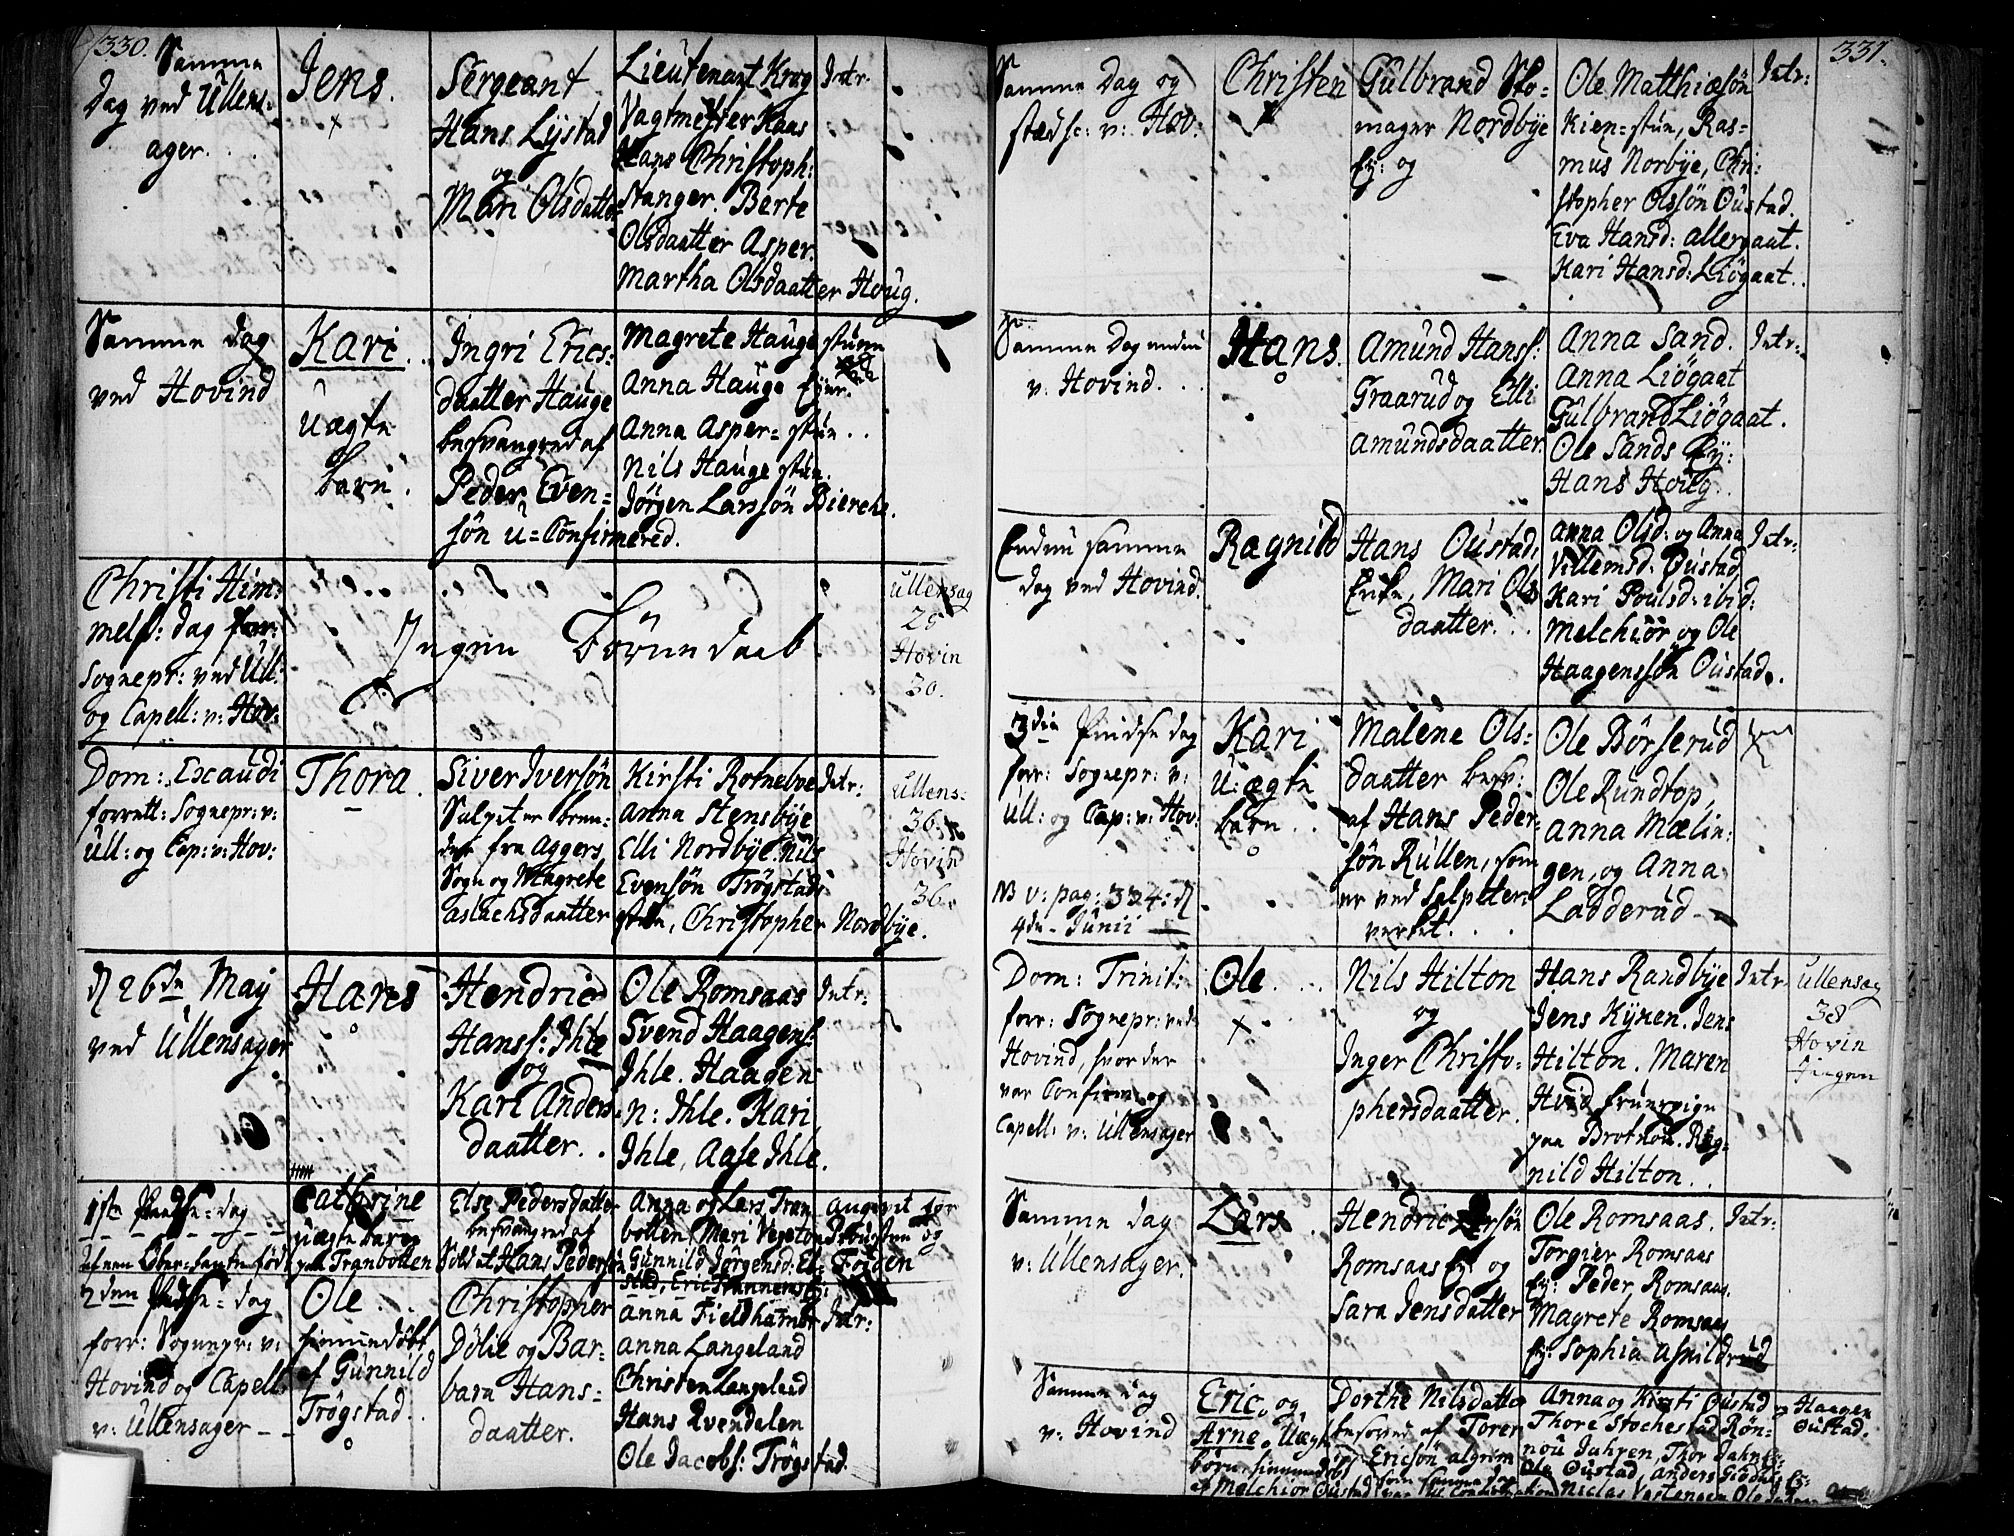 330.
Samme
Dag ved Ullens-
ager.
Jens.
Sergeant
Hans Lystad
og
Mari Olsdatter
Lieutenant Krog
Vagtmester Kaas
Hans Christoph:
Stanger. Berte
Olsdaatter Asper.
Martha Olsdaatter Houg.
Intr.
Samme dag
ved Hovind
Kari
uægte
barn.
Ingri Erics-
daatter Hauge
besvangred af
Peder Even-
søn u-Confirmered.
Magrete Hauge stuen
Anna Hauge Ejer.
Anna Asper-stue.
Nils Hauge stue.
Jørgen Larssøn Bierche.
Christi Him-
melf: dag forr:
Sognepr: ved Ull:
og Capell: v: Hov:
Ingen Børnedaab.
Ullensag
28
Hovin
30.
Dom: Exaudi
forrett: Sognepr: v:
Ull: og Cap: v: Hov:
Thora.
Siver Iversøn
Salpeter bren-
der fra Aggers
Sogn og Magrete
Aslachsdaatter
Kirsti Rotnelve
Anna Stensbye
Elli Nordbye. Nils
Evensøn Trøgstads
stue, Christopher Nordbye.
Intr:
Ullens:
36.
Hovin
36.
d 26de May
ved Ullensager
Hans
Hendric
Hanss: Ihle
og
Kari Anders
daatter.
Ole Romsaas
Svend Haagens:
Ihle. Haagen
n: Ihle. Kari
Ihle, Aase Ihle.
Intr:
1ste Pindse-dag
Cathrine
uægte barn
paa Tranbotten
Else Pedersdatter
besvangret af
Soldat Hans Pedersøn
Anna og Lars Tran
botten, Mari
Gunnild Jørgensd:
Angivet for
Provsten og
Fogden
2den Pindse-dag
forr: Sognepr: v:
Hovind og Capell:
v: Ullensager
Ole
hiemmedøbt
af Gunnild
Trøgstad.
Christopher
Dølie og Bar-
bara Hans-
daatter.
Anna Fieldhamer
Anna Langeland
Christen Langeland
Hans Qvendalen
Ole Jacobs: Trøgstad.
Intr:
331.
Samme Dag og
stædse: v: Hov:
Christen
Gulbrand Sko-
mager Nordbye
Ej: og
Ole Matthiæsøn
Kien-stue, Ras-
mus Norbye, Chri-
stopher Olssøn Oustad.
Eva Hansd: Allergaat.
Kari Hansd: Liøgaat.
Intr:
Samme Dag endnu
v: Hovind.
Hans.
Amund Hanss:
Graarud og Elli
Amundsdaatter.
Anna Sand.
Anna Liøgaat
Gulbrand Liøgaat.
Ole Sands Ej:
Hans Houg.
Intr:
Endnu samme
dag ved Hovind.
Ragnild
Hans Oustad:
Enke, Mari Ols
daatter.
Anna Olsd: og Anna
Villemsd: Oustad
Kari Poulsd: ibid:
Melchior og Ole
Haagenssøn Oustad.
Intr:
3die Pindse dag
forr: Sognepr: v:
Ull: og Cap: v: Hov:
NB v: pag: 334: d
4de Junii
Kari
U:ægte
barn.
Malene Ols-
daatter besv:
af Hans Peder-
søn Rullen, som
er ved Salpeter-
verket.
Ole Børserud
Ole Rundtop,
Anna Mælin-
gen, og Anna
Ladderud
Dom: Trinit:
forr: Sognepr: ved
Hovind, hvor der
var Confirm. og
Capell: v: Ullensager
Ole
Nils Hilton
og
Inger Christo-
phersdaatter.
Hans Randbye
Jens Kyxen. Jens
Hilton. Maren
Hvid fruerpige
paa Brotnou. Rag-
nild Hilton.
Intr.
Ullensag
38
Hovin
Ingen
Samme dag
v: Ullensager.
Lars
Hendric
Romsaas Ej: og
Sara Jensdatter
Ole Romsaas.
Torgier Romsaas
Ej: Peder Romsaas.
Magrete Romsaas
Ej: Sophia Asnildrud
Intr:
Samme dag
v: Hovind
Eric og
Arne, Uægte
børn hiemmedøbt
af Melchior Oustad
Dorthe Nilsdatter
besovet af Torer
Ericsøn Algrim
Anna og Kirsti Oustad
Thore Stochestad Røn-
nou Jahren, Thor Jahren
Ole Oustad, Anders
Haagen
Oustad.